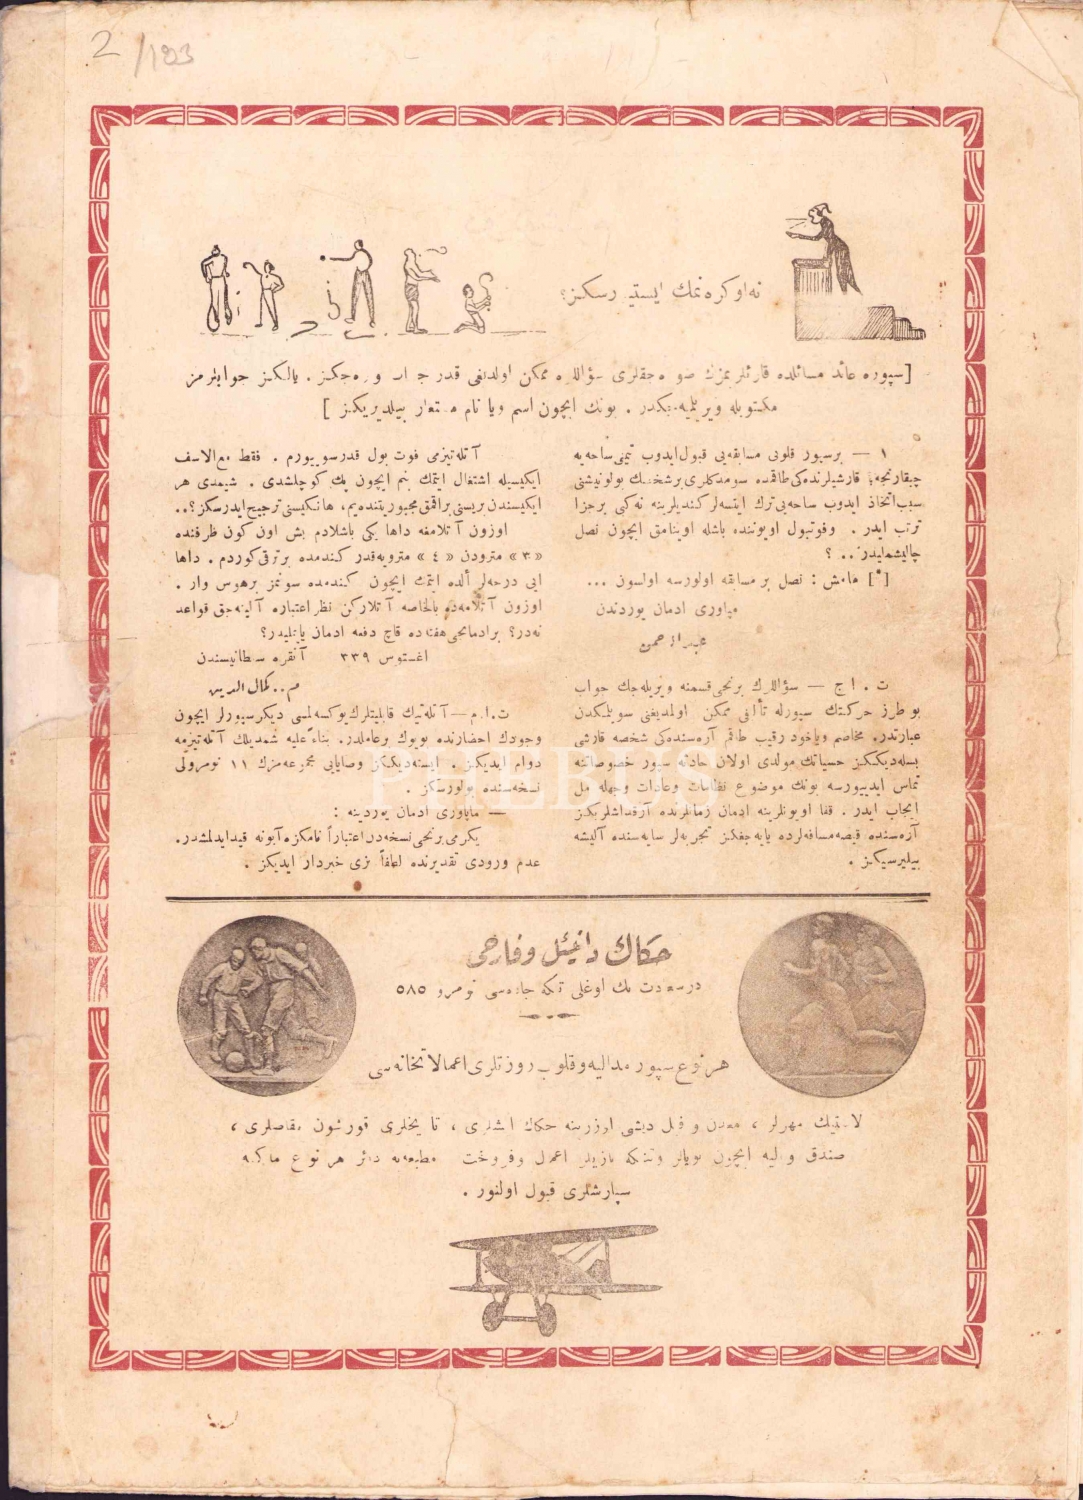 2/123
نه اوكره نمك ايستيورسكز؟
[سپوره عائد مسائلده قارئلریمزك صوره جقلری سؤاللره ممكن اولدیغی قدر جواب ویره جكز . یالكز جوابلرمز
مكتوبله ویریلمیه جكدر . بونك ایچون اسم ویا نام مستعار بیلدیریكز ]
١ — برسپور قلوبی مسابقه یی قبول ایدوب تیمی ساحه یه
چیقارنجه یا قارشیلرنده كی طاقمده سومدكلری برشخصك بولونیشنی
سبب اتخاذ ایدوب ساحه یی ترك ایتسه لر كندیلرینه نه كی برجزا
ترتب ایدر . وفوتبول اویوننده باشله اوینامق ایچون نصل
چالیشمه لیدر .. ؟
[*] هامش : نصل بر مسابقه اولورسه اولسون ...
مپاوری ادمان یوردندن
عبدالرحمن
ت . ا ج — سؤاللرك برنجی قسمنه ویریله جك جواب
بو طرز حركتك سپورله تألیفی ممكن اولمدیغنی سویلمكدن
عبارتدر. مخاصم ویاخود رقیب طاقم آره سنده كی شخصه قارشی
بسله دیككز حسیاتك مولدی اولان حادثه سپور خصوصاتنه
تماس ایدییورسه بونك موضوع نظامات وعادات وجهله حل
ایجاب ایدر . قفا اویونلرینه ادمان زمانلرنده آرقداشلریكز
آره سنده قیصه مسافه لرده یاپه جغكز تجربه لر سایه سنده آلیشه
بیلیرسیكز .
آتله تیزمی فوت بول قدر سویورم . فقط مع الاسف
ایكیسیله اشتغال ایتمك بنم ایچون پك كوچلشدی . شیمدی هر
ایكیسندن بریسنی براقمق مجبوریتنده یم، هانكیسنی ترجیح ایدرسكز؟..
اوزون آتلامغه داها یكی باشلادم بش اون كون ظرفنده
«٣» مترودن «٤» مترویه قدر كندمده بر ترقی كوردم . داها
ایی درجه لر ألده ایتمك ایچون كندمده سونمز برهوس وار .
اوزون آتلامه ده بالخاصه آتلاركن نظر اعتباره آلینه جق قواعد
نه در؟ برادمانجی هفته ده قاچ دفعه ادمان یاپملیدر؟
اغستوس ٣٣٩ آنقره سلطانیسندن
م.. كمال الدین
ت.ا.م — آتله تیك قابلیتلرك یوكسه لمسی دیكر سپورلر ایچون
وجودك احضارنده بویوك برعاملدر. بناء علیه شمدیلك آتله تیزمه
دوام ایدیكز . ایسته دیككز وصایایی مجموعه مزك ١١ نومرولی
نسخه سنده بولورسكز .
— ماپاوری ادمان یوردینه :
یكرمی برنجی نسخه دن اعتباراً نامكزه آبونه قیدایدلمشدر.
عدم ورودی تقدیرنده لطفاً بزی خبردار ایدیكز .
PHEBUS
حكاك دانیئل وفارحی
درسعادت بك اوغلی تكه جاده سی نومرو ٥٨٥
هر نوع سپور مدالیه و قلوب روزتلری اعمالاتخانه سی
لاستیك مهرلر ، معدن و فیل دیشی اوزرینه حكاك ایشلری ، تاریخلری قورشون مقاصلری ،
صندق و بالیه ایچون بویالر وتنكه یازیلر اعمال وفروخت مطبعه یه دائر هر نوع ماكنه
سپارشلری قبول اولنور .